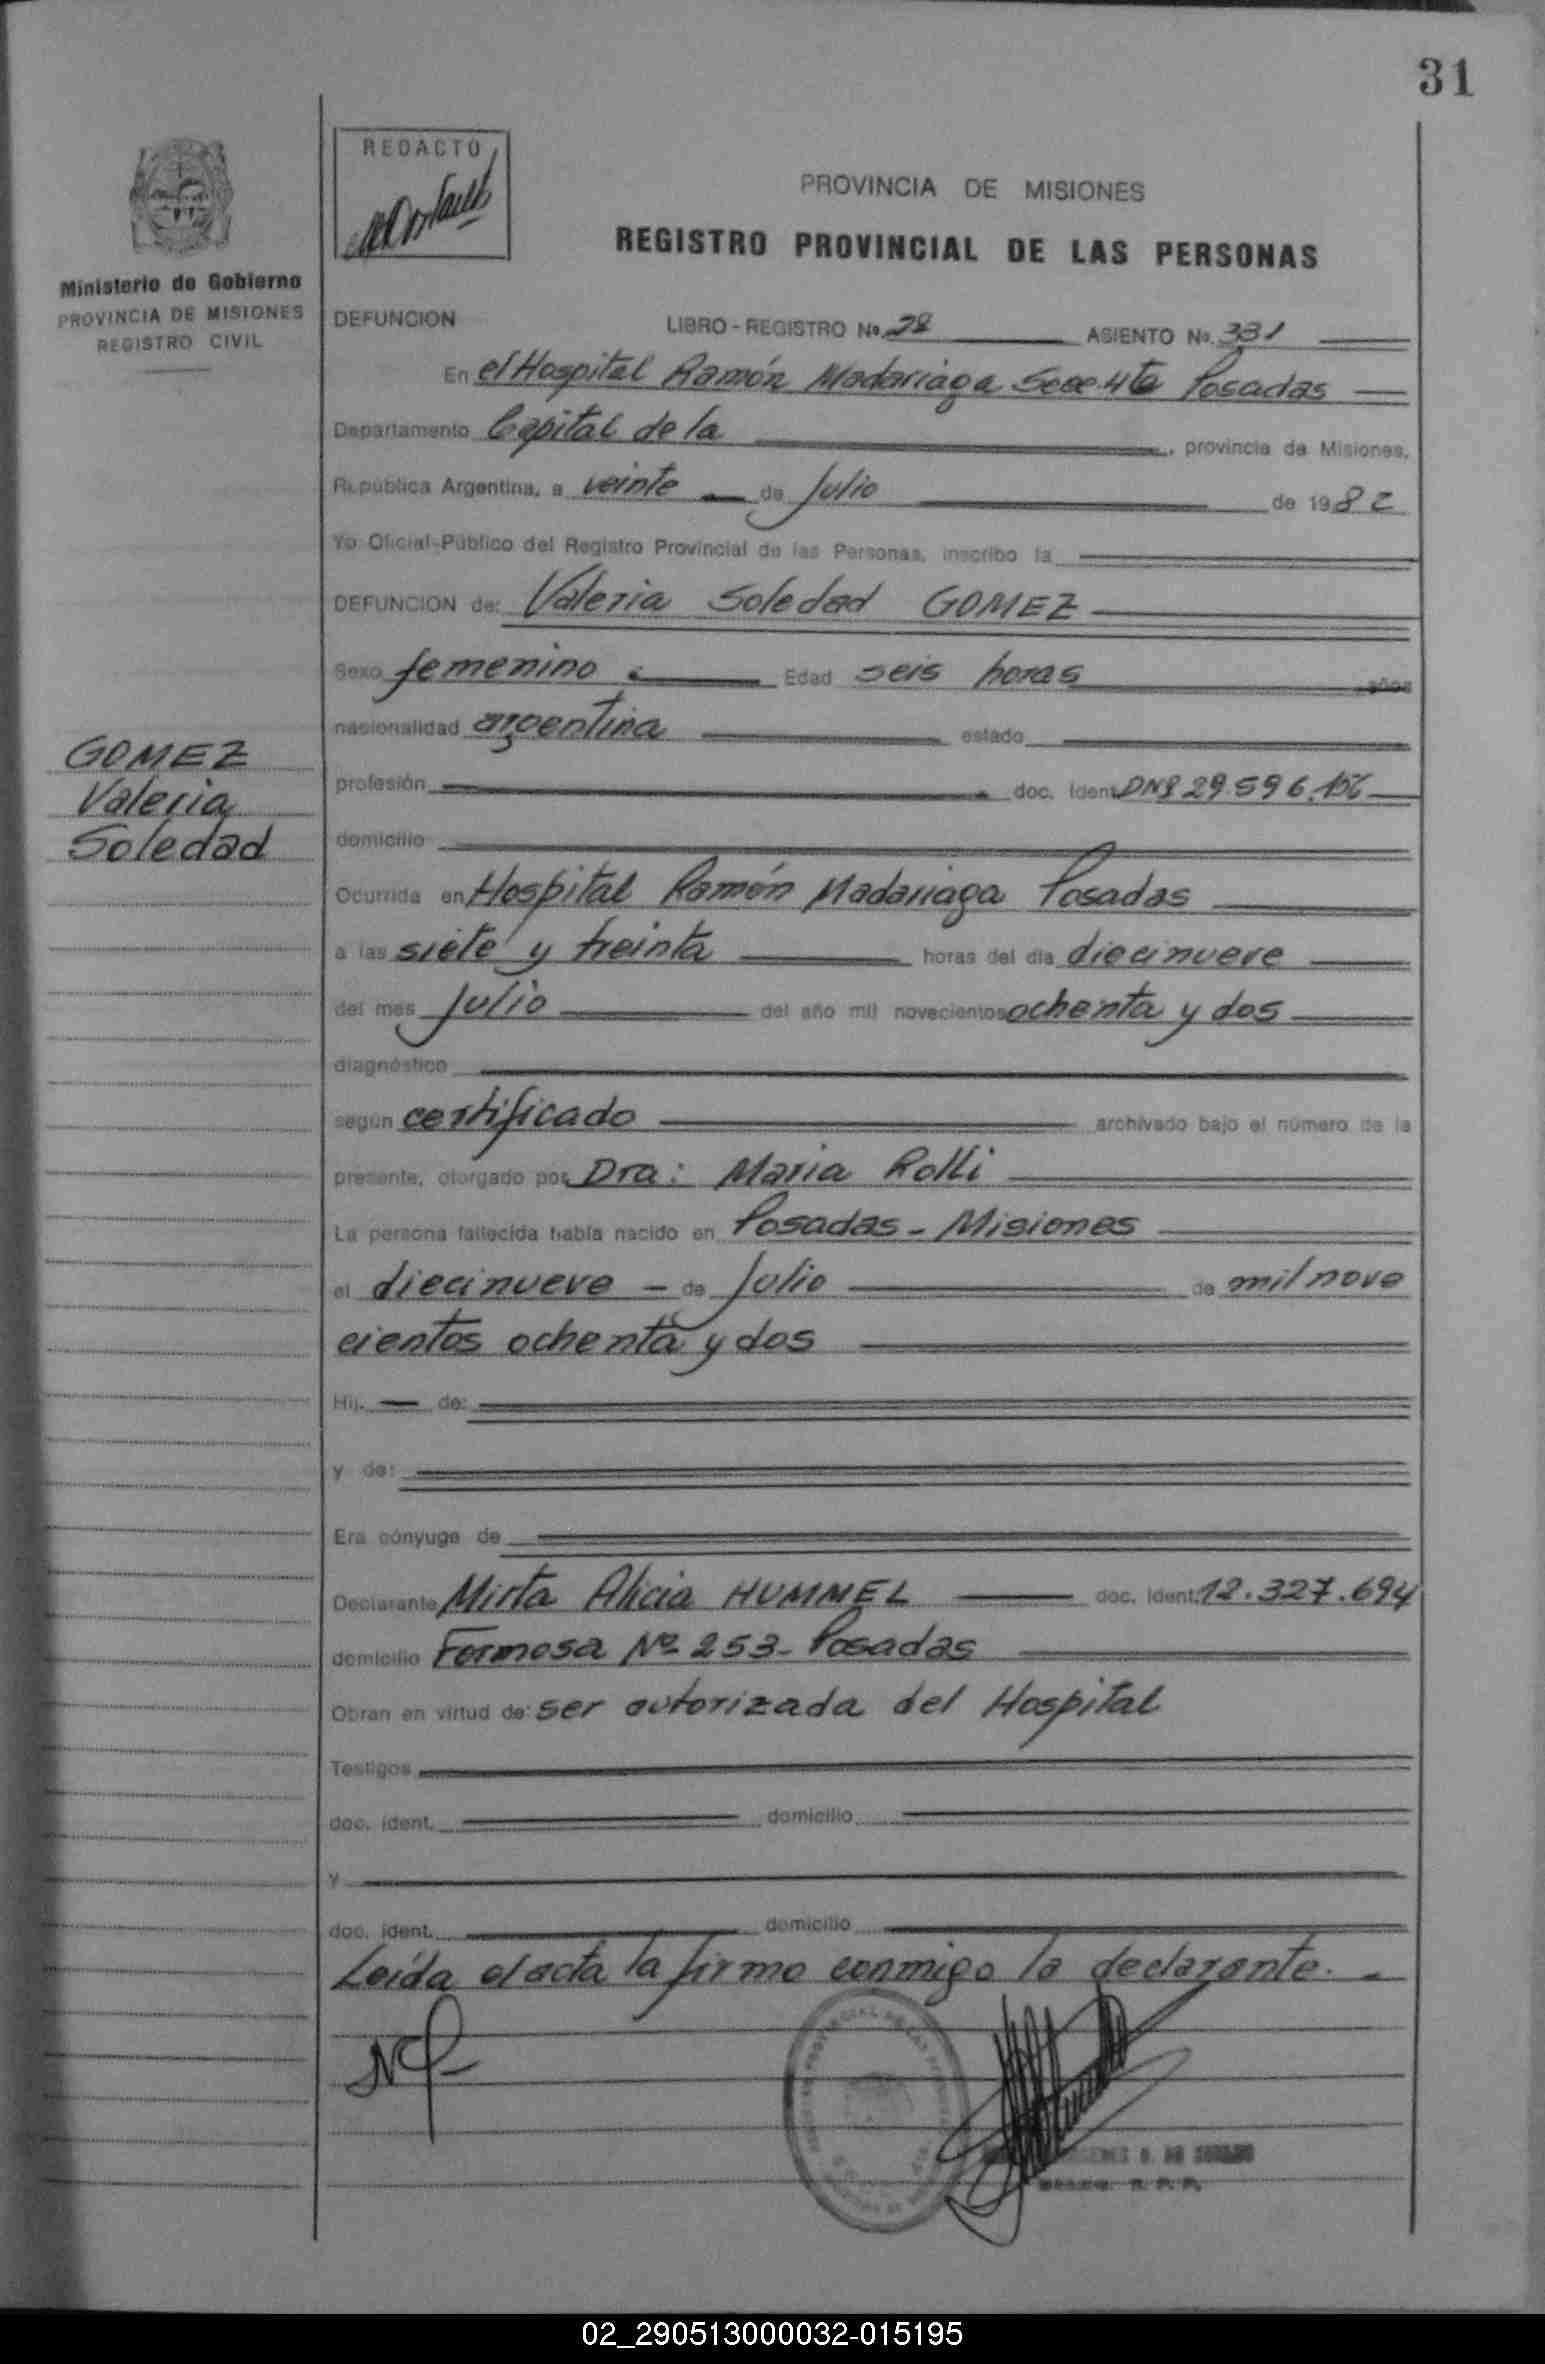 31
REDACTO
PROVINCIA DE MISIONES
REGISTRO PROVINCIAL DE LAS PERSONAS
Ministerio de Gobierno
PROVINCIA DE MISIONES
REGISTRO CIVIL
DEFUNCION LIBRO - REGISTRO No. 28 ASIENTO No. 331
En el Hospital Ramón Madariaga Secc. 4ta Posadas
Departamento Capital de la , provincia de Misiones,
República Argentina, a veinte de Julio de 1982
Yo Oficial Público del Registro Provincial de las Personas, inscribo la
DEFUNCION de: Valeria Soledad GOMEZ
Sexo femenino Edad seis horas años
nacionalidad argentina estado
GOMEZ
Valeria
Soledad
profesión doc. ident. DNI 29.596.156
domicilio
Ocurrida en Hospital Ramón Madariaga Posadas
a las siete y treinta horas del día diecinueve
del mes Julio del año mil novecientos ochenta y dos
diagnóstico
según certificado archivado bajo el número de la
presente, otorgado por Dra: Maria Rolli
La persona fallecida había nacido en Posadas - Misiones
el diecinueve - de Julio de mil nove
cientos ochenta y dos
Hij. de:
y de:
Era cónyuge de
Declarante Mirta Alicia HUMMEL doc. ident. 12.327.694
domicilio Formosa Nº 253 - Posadas
Obran en virtud de: ser autorizada del Hospital
Testigos
doc. ident. domicilio
y
doc. ident. domicilio
Leída el acta la firmo conmigo la declarante. -
02_290513000032-015195